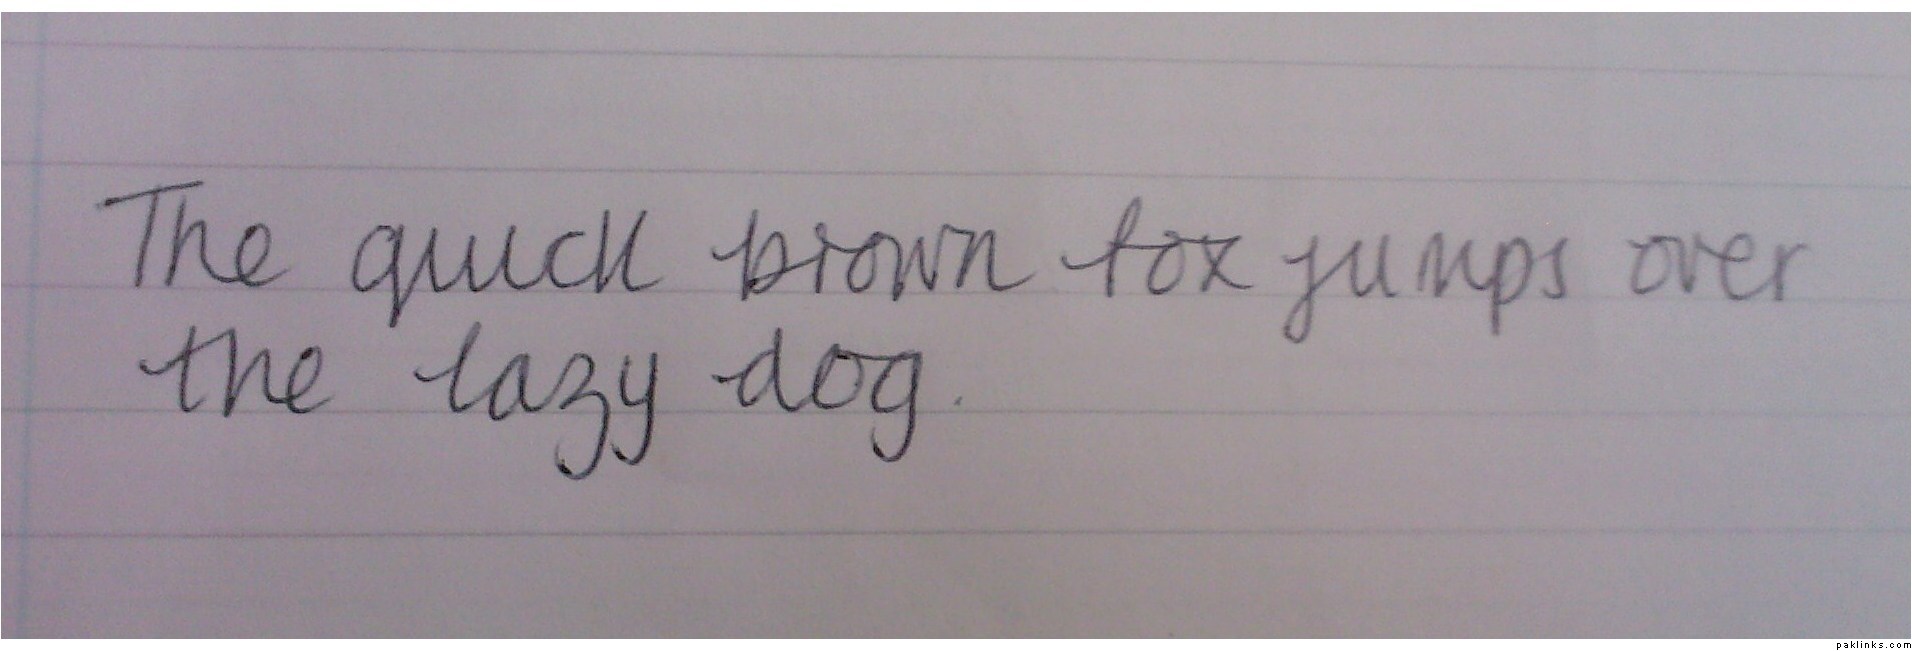 The quick brown fox jumps over
the lazy dog.
paklinks.com